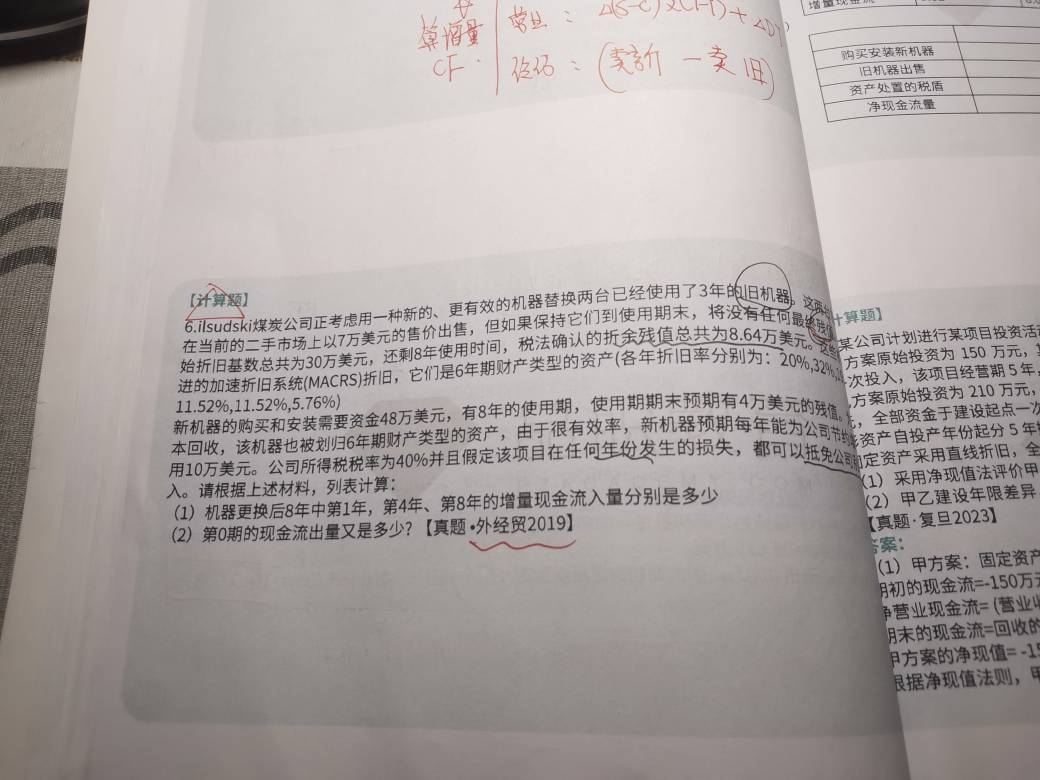 算增量
CF
营业：Δ(S-C)×(1-T)+ΔDT
终结：(卖新-卖旧)
【计算题】
6.ilsudski煤炭公司正考虑用一种新的、更有效的机器替换两台已经使用了3年的旧机器。这两
在当前的二手市场上以7万美元的售价出售，但如果保持它们到使用期末，将没有任何最终残
始折旧基数总共为30万美元，还剩8年使用时间，税法确认的折余残值总共为8.64万美元。这些
进的加速折旧系统(MACRS)折旧，它们是6年期财产类型的资产(各年折旧率分别为：20%,32%,
11.52%,11.52%,5.76%)
新机器的购买和安装需要资金48万美元，有8年的使用期，使用期期末预期有4万美元的残值。
本回收，该机器也被划归6年期财产类型的资产，由于很有效率，新机器预期每年能为公司节约
用10万美元。公司所得税税率为40%并且假定该项目在任何年份发生的损失，都可以抵免公司
入。请根据上述材料，列表计算：
（1）机器更换后8年中第1年，第4年、第8年的增量现金流入量分别是多少
（2）第0期的现金流出量又是多少？【真题·外经贸2019】
增量现金流
购买安装新机器
旧机器出售
资产处置的税盾
净现金流量
计算题】
某公司计划进行某项目投资活动
方案原始投资为 150 万元，
次投入，该项目经营期 5 年，
方案原始投资为 210 万元，
，全部资金于建设起点一次
资产自投产年份起分 5 年
定资产采用直线折旧，全
（1）采用净现值法评价甲
（2）甲乙建设年限差异
【真题·复旦2023】
答案：
（1）甲方案：固定资产
期初的现金流=-150万元
净营业现金流=（营业收
期末的现金流=回收的
甲方案的净现值= -15
根据净现值法则，甲